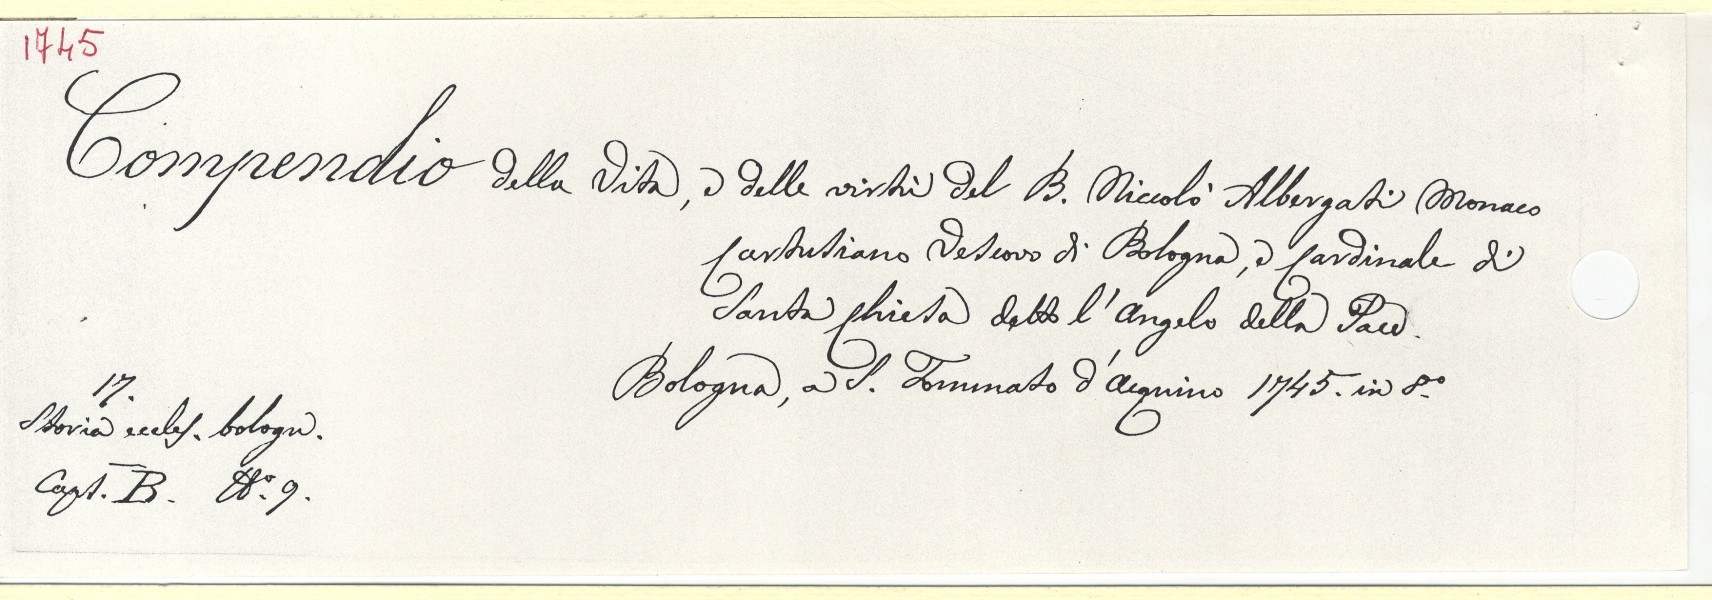 1745
Compendio della Vita, e delle virtù del B. Niccolò Albergati Monaco
Certosiano Vescovo di Bologna, e Cardinale di
Santa Chiesa detto l'Angelo della Pace.
Bologna, a S. Tommaso d'Acquino 1745. in 8.o
17.
Storia eccles. bologn.
Capt. B. No. 9.